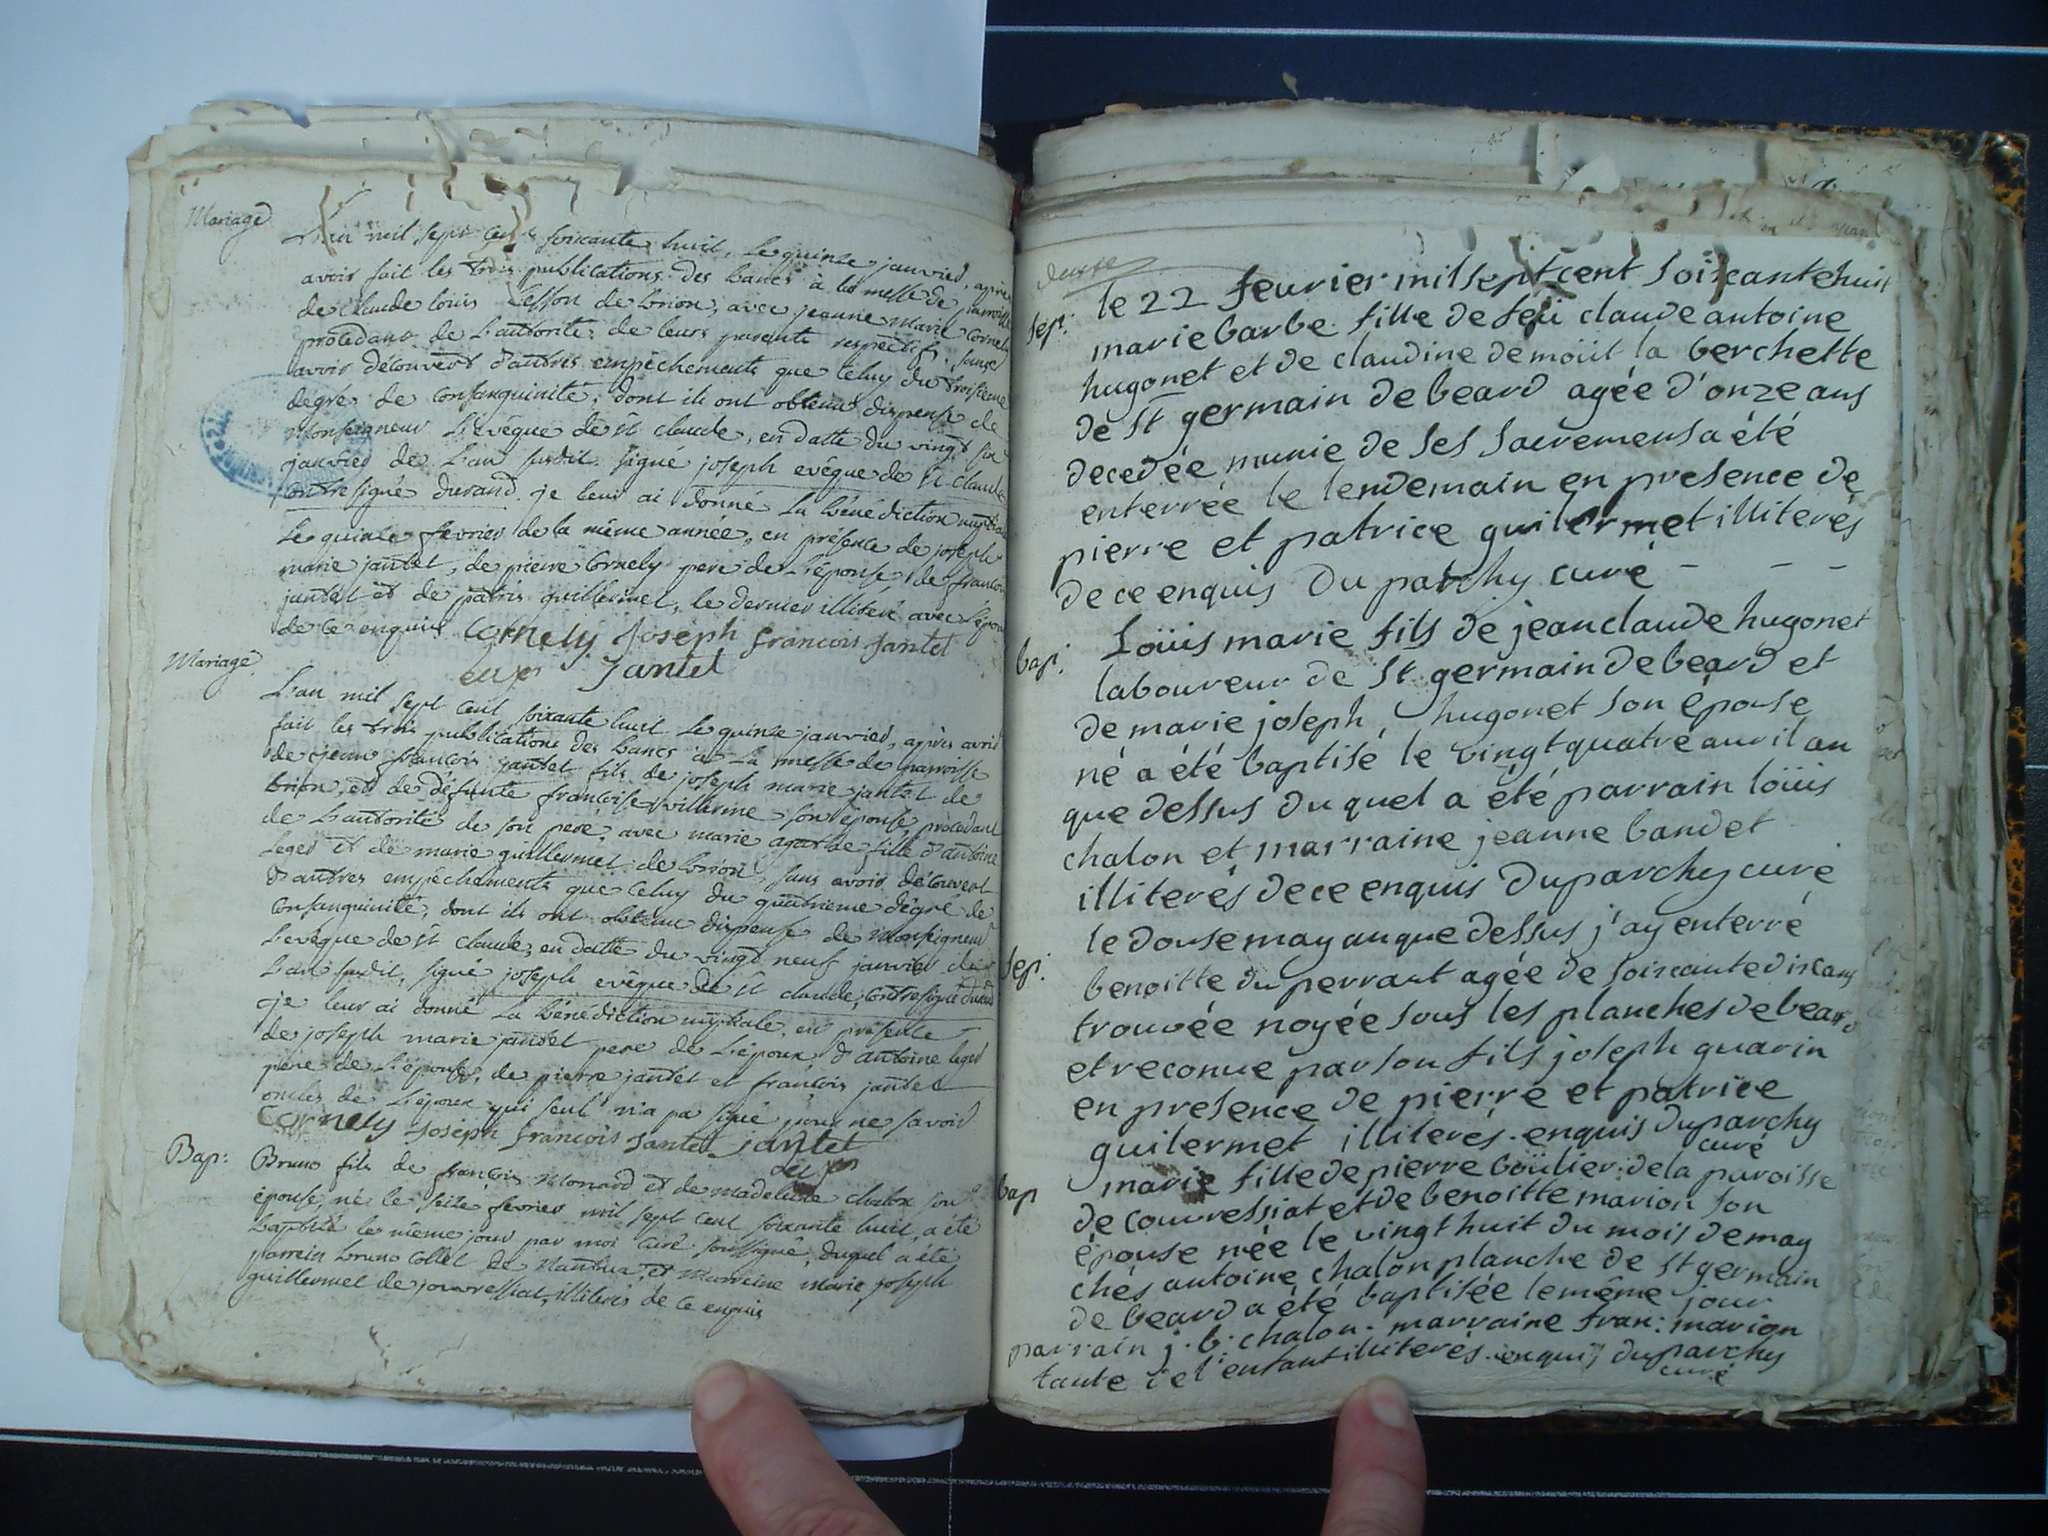 Mariage
L'an mil sept cent soixante huit, le quinze janvier, après
avoir fait les trois publications des bancs à la messe de parroisse
de claude louis Lesson de brion, avec jeanne marie Cornely
procedant de L'autorité de leurs parents respectifs, sans
avoir découvert d'autres empêchements que Celuy du troisieme
degré de Consanguinité, dont ils ont obtenu dispense de
Monseigneur L'évêque de st claude, en datte du vingt six
janvier de L'an susdit signé joseph evêque de st claude
Contresigné durand. je leur ai donné La bénédiction nuptiale
Le quinze fevrier de la même année, en présence de joseph
marie jantet, de pierre Cornely pere de L'épouse, de francois
jantet et de patris guillermet, le dernier illitéré avec L'épouse
de ce enquis Cornely Joseph francois Jantet
Jantet
Mariage
L'an mil sept cent soixante huit Le quinze janvier, après avoir
fait les trois publications des bancs à La messe de parroisse
de jean francois jantet fils de joseph marie jantet de
brion, et de défunte francoise guillerme son épouse, procedant
de L'autorité de son pere, avec marie agathe fille d'antoine
Leger et de marie guillermet de brion sans avoir découvert
d'autres empêchements que Celuy du quatrieme dégré de
Consanguinité, dont ils ont obtenu dispense de Monseigneur
L'evêque de st claude, en datte du vingt neuf janvier de
L'an susdit, signé joseph evêque de st claude, Contresigné durand
je leur ai donné La bénédiction nuptiale en présence
de joseph marie jantet pere de L'époux d'antoine leger
pere de L'épouse, de pierre jantet et françois jantet
oncles de L'époux qui seul n'a pa signé pour ne savoir
Cornely Joseph francois Jantet jantet
Bap:
Bruno fils de francois Monard et de Madeleine chalon son
épouse, né le seize fevrier mil sept cent soixante huit, a été
baptisé le même jour par moi curé soussigné, duquel a été
parrein bruno Collet de Nantua, et Marreine marie joseph
guillermet de jouvressiat, illiterés de ce enquis
sep:
le 22 feurier mil sept cent soixante huit
marie barbe fille de feü claude antoine
hugonet et de claudine demoüit la berchette
de st germain de beard agée d'onze ans
decedée munie de ses sacremens a été
enterrée le lendemain en presence de
pierre et patrice guilermet illiterés
de ce enquis Duparchy curé - - -
bap:
Loüis marie fils de jean claude hugonet
laboureur de St germain de beard et
de marie joseph hugonet son épouse
né a été baptisé le vingt quatre auril an
que dessus du quel a été parrain loüis
chalon et marraine jeanne bandet
illiterés de ce enquis Duparchy curé
sep:
le douse may an que dessus j'ay enterré
benoitte du perraut agée de soixante dix ans
trouvée noyée sous les planches de beard
et reconue par son fils joseph quarin
en presence de pierre et patrice
guilermet illiterés. enquis Duparchy
curé
bap
marie fille de pierre boülier de la paroisse
de couvressiat et de benoitte marion son
épouse née le vingt huit du mois de may
chés antoine chalon planche de st germain
de beard a été baptisée le même jour
parrain j. b. chalon. marraine fran: marion
tante de l'enfant illiterés. enquis duparchy
curé